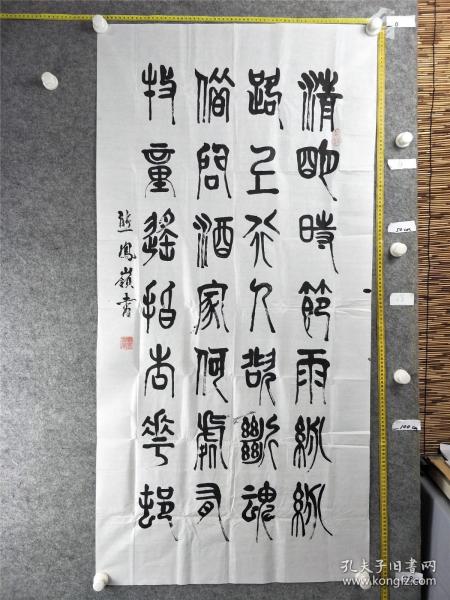 清明時節雨紛紛
路上行人欲斷魂
借問酒家何處有
牧童遙指杏花邨
熊鳳嶺書
0
50cm
100cm
孔夫子旧书网
www.kongfz.com